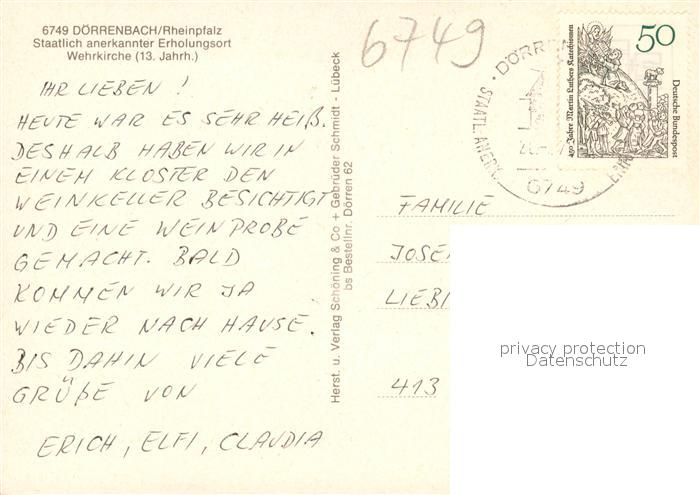 6749 DÖRRENBACH/Rheinpfalz
Staatlich anerkannter Erholungsort
Wehrkirche (13. Jahrh.)
6749
IHR LIEBEN !
HEUTE WAR ES SEHR HEIß.
DESHALB HABEN WIR IN
EINEM KLOSTER DEN
WEINKELLER BESICHTIGT
UND EINE WEINPROBE
GEMACHT. BALD
KOMMEN WIR JA
WIEDER NACH HAUSE.
BIS DAHIN VIELE
GRÜßE VON
ERICH, ELFI, CLAUDIA
Herst. u. Verlag Schöning & Co + Gebrüder Schmidt · Lübeck
bs Bestellnr. Dörren 62
50
Deutsche Bundespost
450 Jahre Martin Luthers Katechismen
DÖRRE
STAATL. ANERK.
6749
FAMILIE
JOSE
LIEB
413
privacy protection
Datenschutz